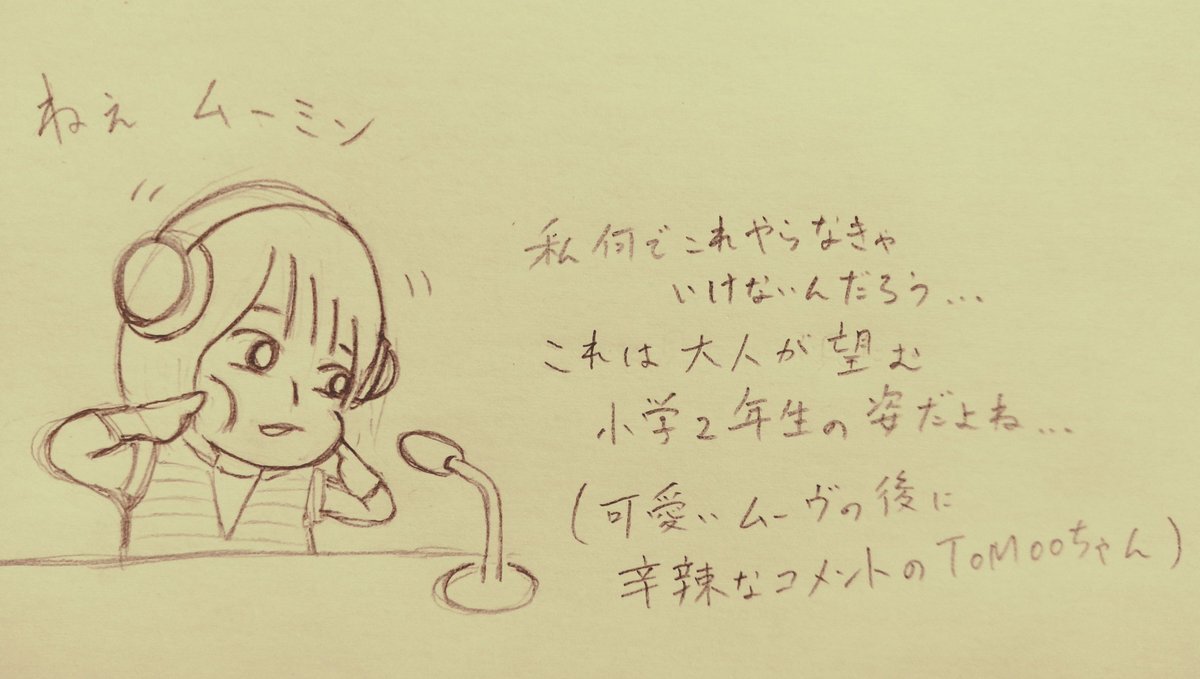 ねぇ ムーミン
私何でこれやらなきゃ
いけないんだろう...
これは大人が望む
小学2年生の姿だよね...
(可愛いムーヴの後に
辛辣なコメントのTOMOOちゃん)